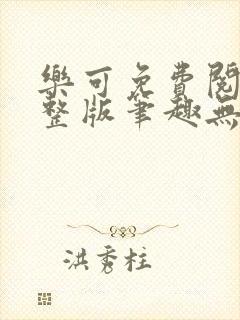 樂可免費閱
整版筆趣無
洪秀柱